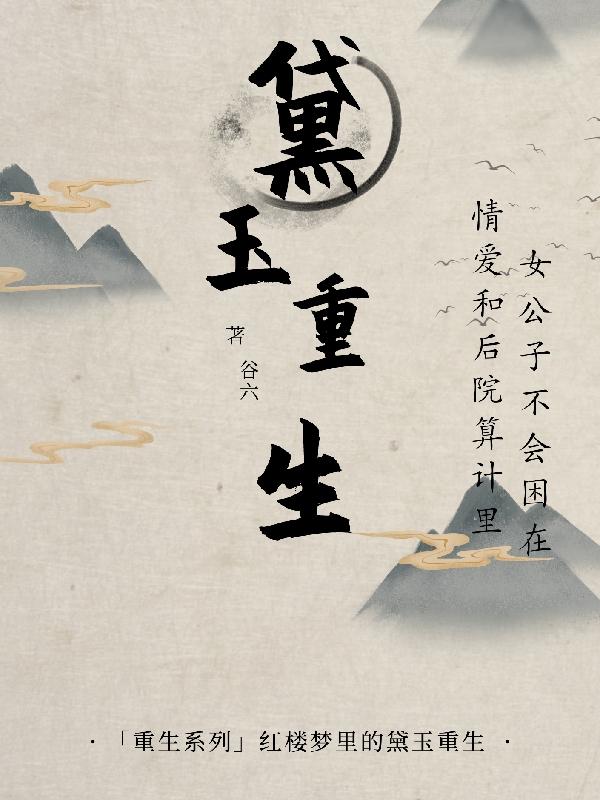 黛玉重生
谷六
著
女公子不会困在
情爱和后院算计里
·「重生系列」红楼梦里的黛玉重生·